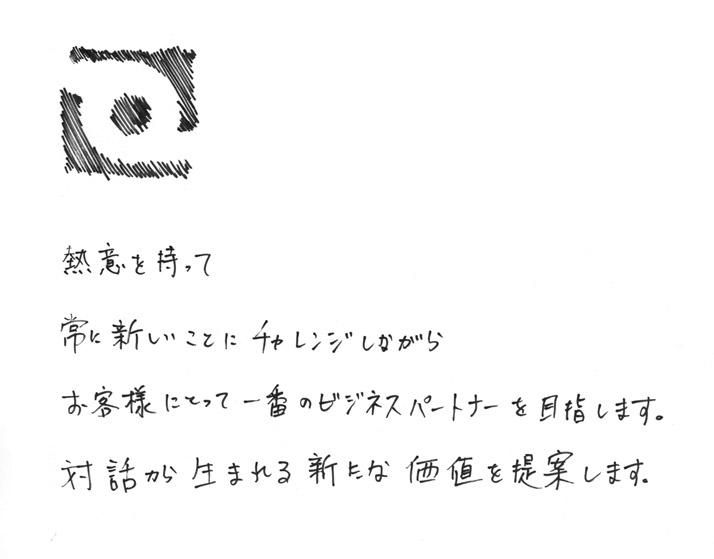 熱意を持って
常に新しいことにチャレンジしながら
お客様にとって一番のビジネスパートナーを目指します。
対話から生まれる新たな価値を提案します。